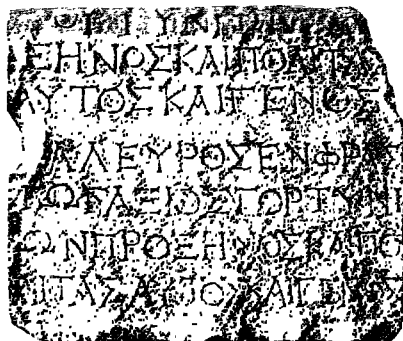 ΞΗΝΟΣΚΑΙΠΟΛΙΤΑΣ
ΑΥΤΟΣΚΑΙΓΕΝΟΣ
ΑΛΕΥΡΟΣΕΝΦΡ
ΑΞΙΟΣΓΟΡΤΥΝΙ
ΩΝΠΡΟΞΗΝΟΣΚΑΙΠΟ
ΙΤΑΣΑΥΤΟΣΚΑΙΓΕΝΟΣ